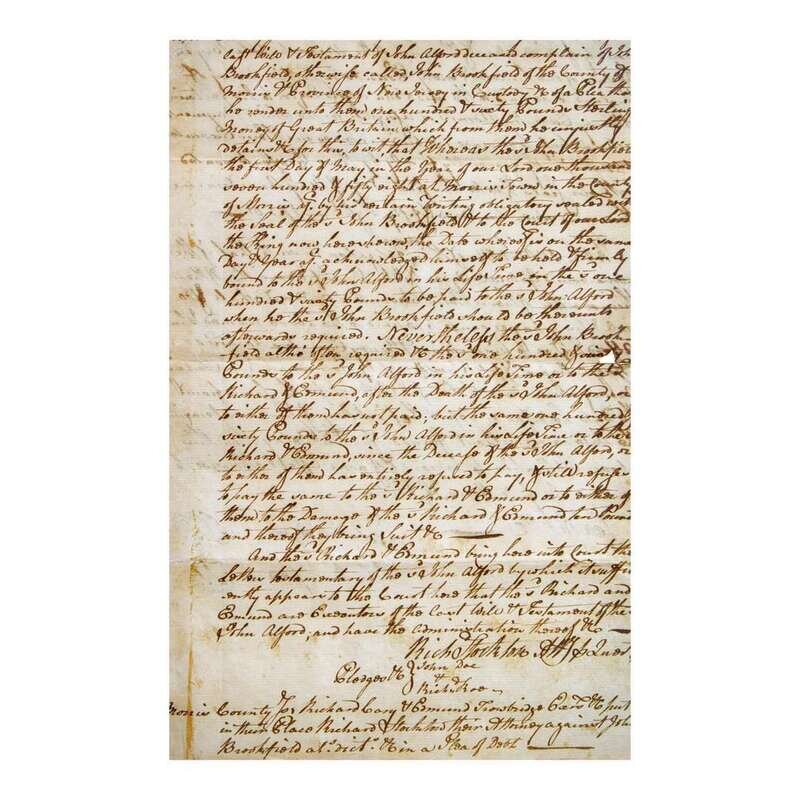 last Will & Testament of John Alford deceased complain of Joh
Brookfield, otherwise called, John Brookfield of the County of
Morris & Province of New Jersey in Custody &c of a Plea that
he render unto them one hundred & sixty Pounds Sterling
Money of Great Britain which from them he unjustly
detains & for this, to wit, that Whereas the sd. John Brookfield
the first Day of May in the Year of our Lord one thousand
seven hundred & fifty eight at Morris Town in the County
of Morris by his certain Writing obligatory sealed with
the Seal of the sd. John Brookfield & to the Court of our Lord
the King now here shewn, the Date whereof is on the same
Day & Year acknowledged himself to be held & firmly
bound to the sd. John Alford in his Life Time in the sd. one
hundred & sixty Pounds to be paid to the sd. John Alford
when he the sd. John Brookfield should be thereunto
afterwards required. Nevertheless the sd. John Brook
field altho' often required &c the sd. one hundred &
Pounds to the sd. John Alford in his Life Time or to the
Richard & Edmund, after the Death of the sd. John Alford, or
to either of them has not paid; but the same one hundred
sixty Pounds to the sd. John Alford in his Life Time or to the
Richard & Edmund, since the Decease of the sd. John Alford, or
to either of them has entirely refused to pay, & still refuses
to pay the same to the sd. Richard & Edmund or to either of
them to the Damage of the sd. Richard & Edmund ten Pounds
and thereof they bring Suit &c
And the sd. Richard & Edmund bring here into Court the
Letters testamentary of the sd. John Alford by which it suffi
ently appears to the Court here that the sd. Richard and
Edmund are Executors of the last Will & Testament of the
John Alford, and have the administration thereof &c
Rich Stockton Att
Pledges &c John Doe
&
Rich Roe
Morris County ss Richard Cary & Edmund Trowbridge Exrs &c put
in their Place Richard Stockton their Attorney against John
Brookfield als. dict. &c in a Plea of Debt